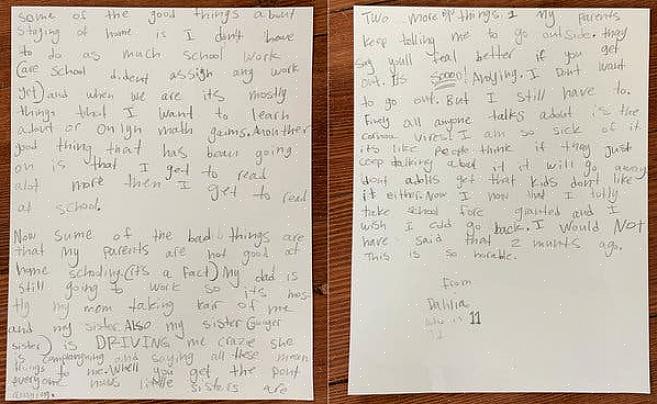 some of the good things about
staying at home is I don't have
to do as much school work
(are school dident assign any work
yet) and when we are its mostly
things that I want to learn
about or onlyn math gaims. Another
good thing that has bean going
on is that I get to read
alot more then I get to read
at school.
Now sume of the bad things are
that my parents are not good at
home schooling. (it's a fact) My dad is
still going to work so its mos-
tly my mom taking kair of me
and my sister. Also my sister (younger
sister) is DRIVING me crazie she
is complangning and saying all these mean
things to me. Whell you get the pont
everyone nows little sisters are
anoying.
Two more things. 1 My parents
keep telling me to go outside. they
say you'll feal better if you get
out. Its soooo! Anoying. I Dont want
to go out. But I still have to.
Finely all anyone talks about is the
corona vires! I am so sick of it
its like people think if they just
ceep talking about it it will go away
dont adolts get that kids don't like
it either. Now I now that I tolly
take school fore granted and I
wish I culd go back. I would NOT
have said that 2 munts ago.
This is so horable.
from
Dahlia
who is 11